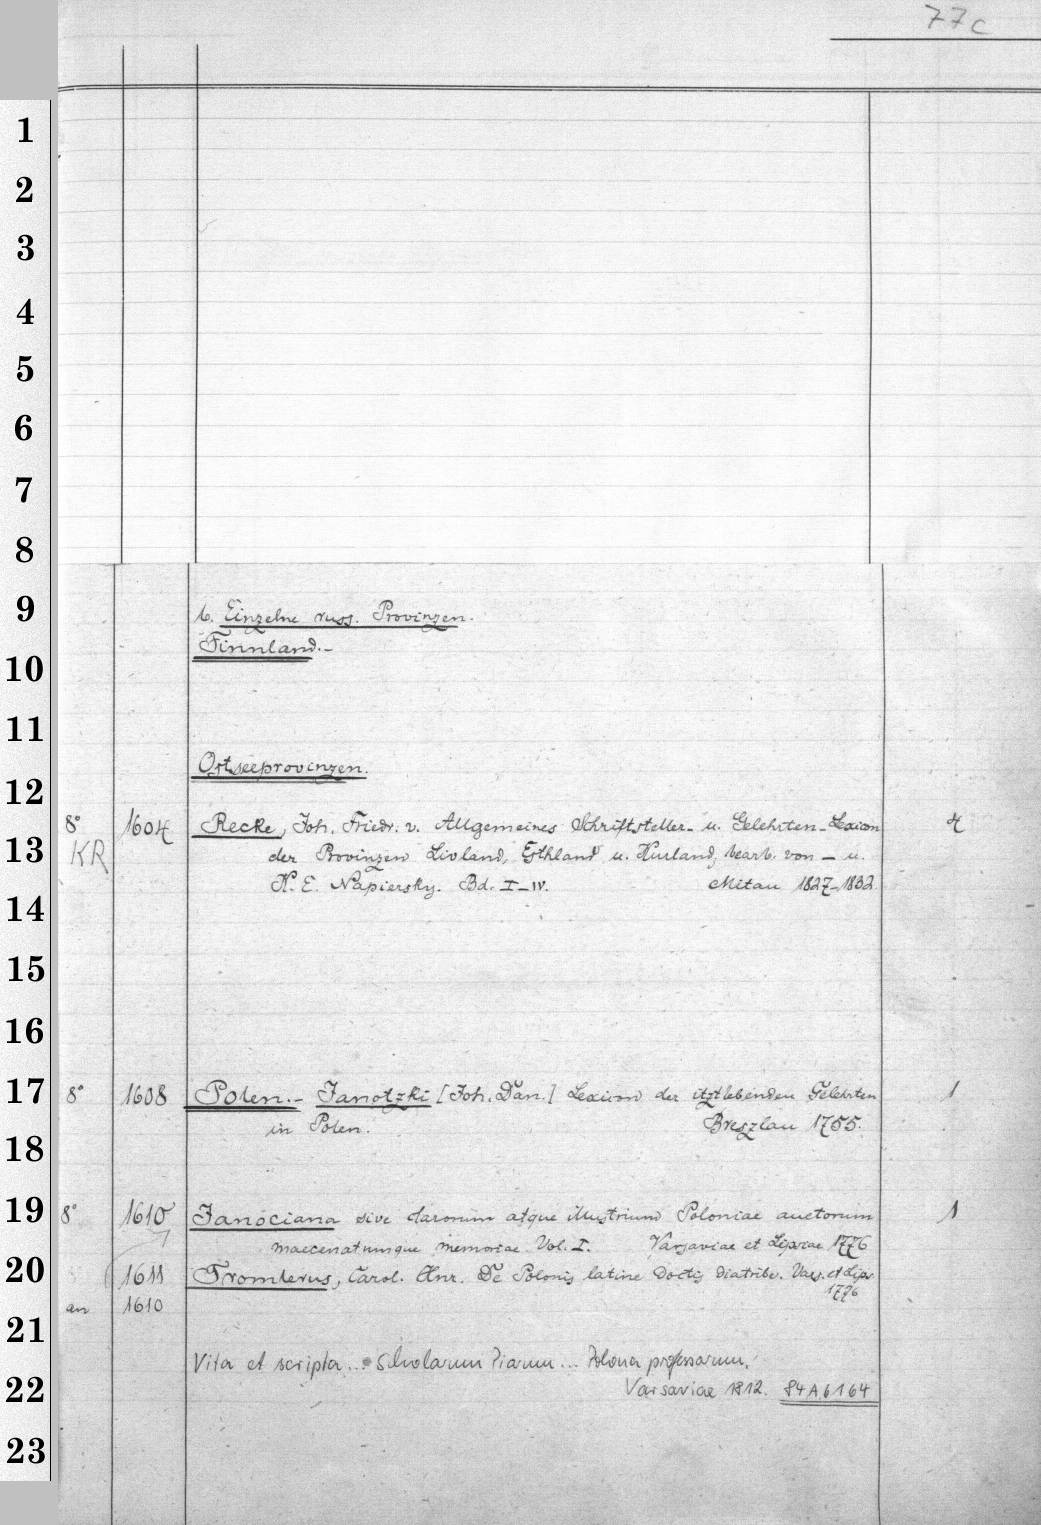 77c
1
2
3
4
5
6
7
8
9
10
11
12
13
14
15
16
17
18
19
20
21
22
23
b. Einzelne russ. Provinzen.
Finnland.-
Ostseeprovinzen.
8° 1604 Recke, Joh. Friedr. v. Allgemeines Schriftsteller- u. Gelehrten-Lexicon 4
KR der Provinzen Livland, Esthland u. Kurland, bearb. von - u.
K. E. Napiersky. Bd. I-IV. Mitau 1827-1832.
8° 1608 Polen.- Janotzki [Joh. Dan.] Lexicon der itztlebenden Gelehrten 1
in Polen. Breszlau 1755.
8° 1610 Janociana sive clarorum atque illustrium Poloniae auctorum 1
maecenatumque memoriae. Vol. I. Varsaviae et Lipsiae 1776
1611 Fromlerus, Carol. Hnr. De Polonis latine doctis diatribe. Vars. et Lips.
1776
an 1610
Vita et scripta... Scholarum Piarum... Polona professorum.
Varsaviae 1812. 84A6164